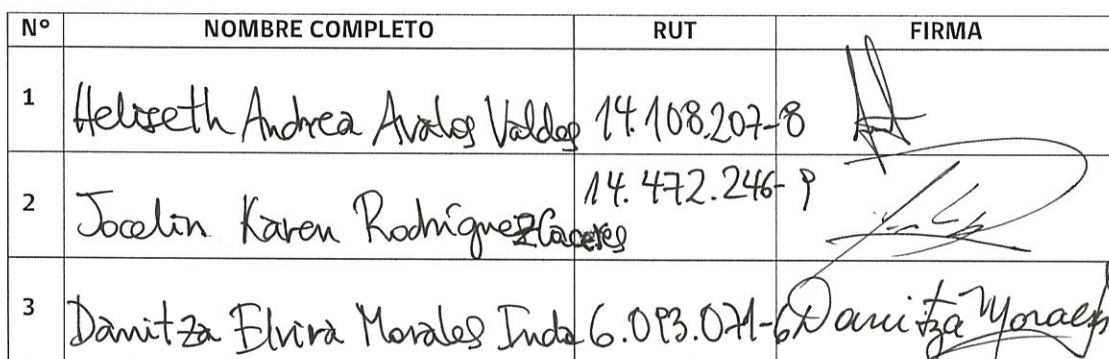 Nº NOMBRE COMPLETO RUT FIRMA
1 Heliseth Andrea Avalos Valdes 14.108.207-8
2 Jocelin Karen Rodríguez Caceres 14.472.246-9
3 Danitza Elvira Morales Inda 6.093.071-6 Danitza Moraes